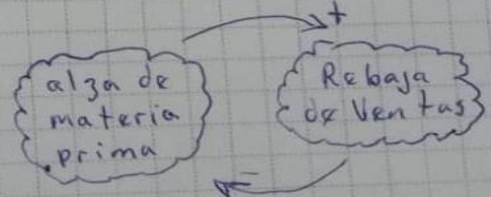 +
alza de
materia
prima
Rebaja
de Ventas
-